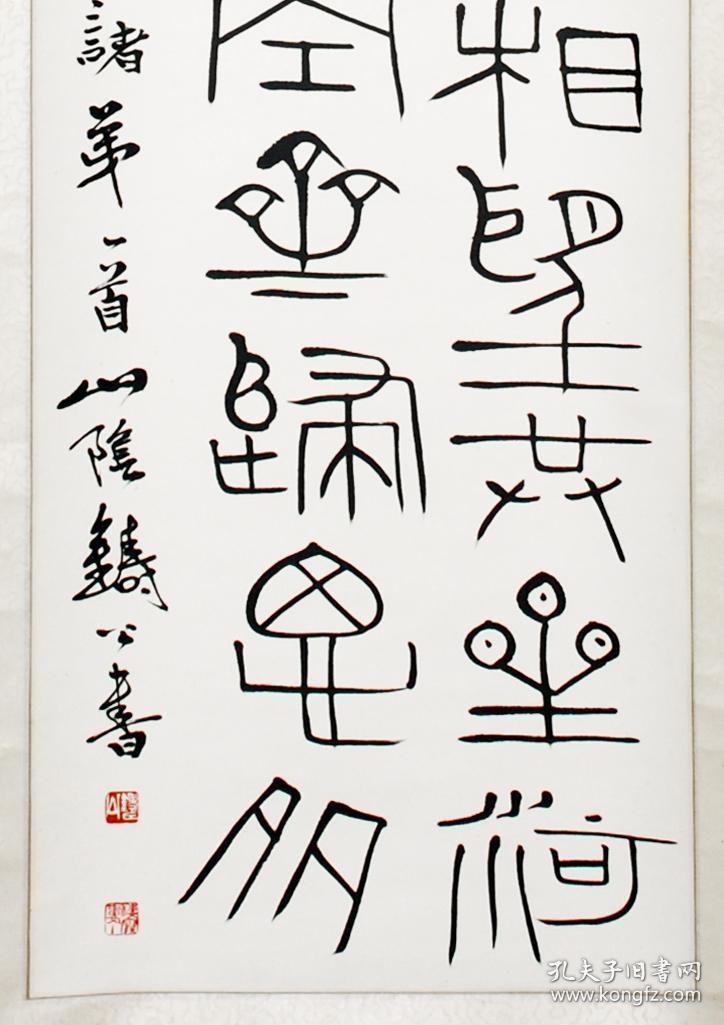 相望共星河
全歸思多
諸第一首山陰鑄公書
孔夫子旧書网
www.kongfz.com